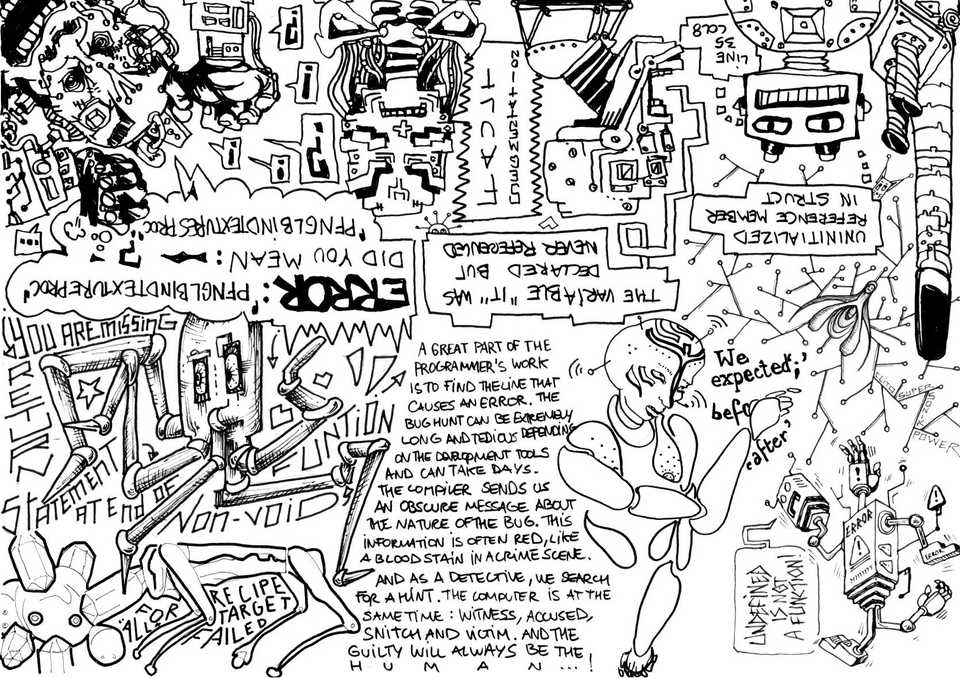 LINE
35
COL8
ERROR: 'PFNGLBINDTEXTUREPROC',
DID YOU MEAN:
'PFNGLBINDTEXTURESPROC'
THE VARIABLE "IT" WAS
DECLARED BUT
NEVER REFERENCED
UNINITIALIZED
REFERENCE MEMBER
IN STRUCT
YOU ARE MISSING
RETURN
STATEMENT AT END
OF
NON-VOID
FUNCTION
RECIPE
FOR TARGET
"ALL" FAILED
A GREAT PART OF THE
PROGRAMMER'S WORK
IS TO FIND THE LINE THAT
CAUSES AN ERROR. THE
BUG HUNT CAN BE EXTREMELY
LONG AND TEDIOUS DEPENDING
ON THE DEVELOPMENT TOOLS
AND CAN TAKE DAYS.
THE COMPILER SENDS US
AN OBSCURE MESSAGE ABOUT
THE NATURE OF THE BUG. THIS
INFORMATION IS OFTEN RED, LIKE
A BLOOD STAIN IN A CRIME SCENE.
AND AS A DETECTIVE, WE SEARCH
FOR A HINT. THE COMPUTER IS AT THE
SAME TIME: WITNESS, ACCUSED,
SNITCH AND VICTIM. AND THE
GUILTY WILL ALWAYS BE THE
HUMAN...!
We
expected ';'
befo
'after'
SUPER
POWER
C
ERROR
ERROR
UNDEFINED
IS NOT
A FUNCTION!